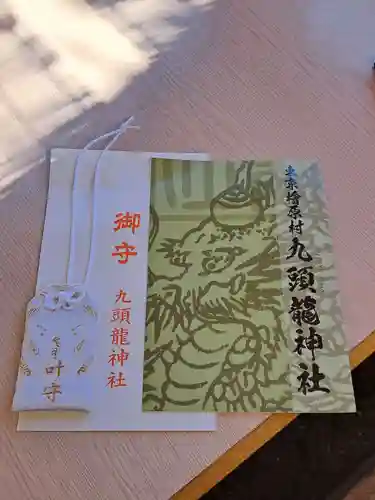 東京檜原村
九頭龍神社
御守
九頭龍神社
叶守